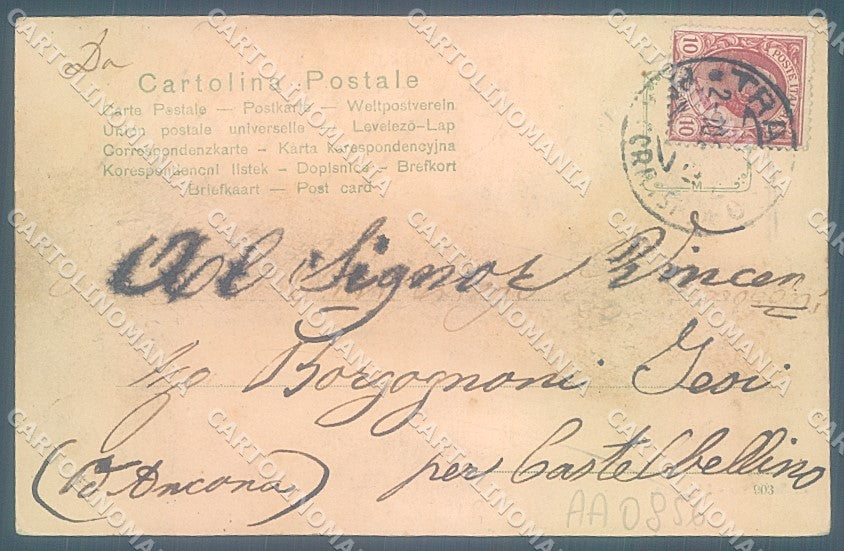 Da
Cartolina Postale
Carte Postale — Postkarte — Weltpostverein
Union postale universelle — Levelező-Lap
Correspondenzkarte — Karta korespondencyjna
Korespondencni listek — Dopisnice — Brefkort
Briefkaart — Post card
10 POSTE ITAL 10
TRA
M
Al Signor Vincen
zo Borgognoni Jesi
per Castelbellino
(Pa Ancona)
903
AA0856
CARTOLINOMANIA